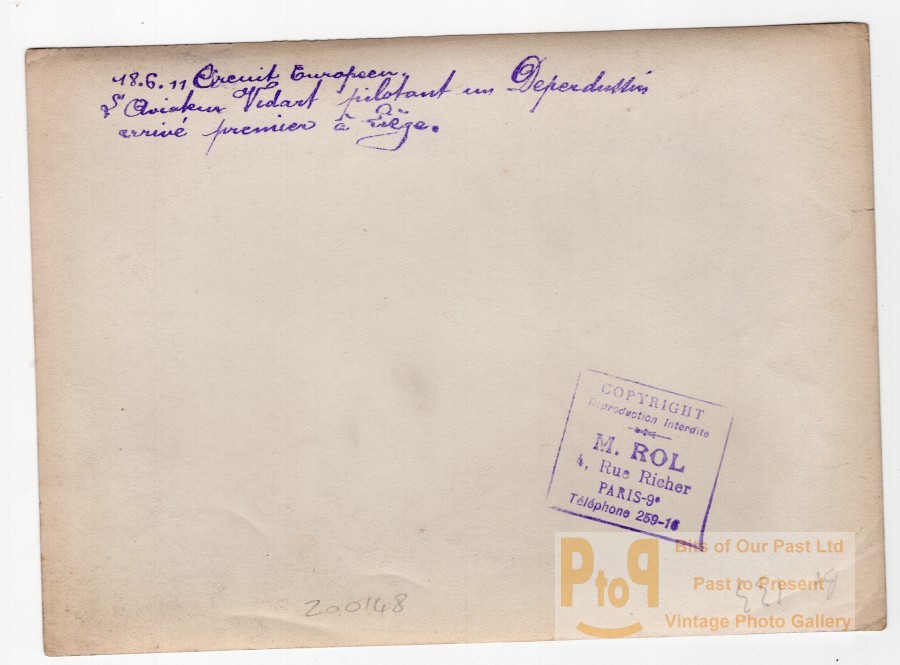 18.6.11 Circuit Européen.
L'Aviateur Vidart pilotant un Deperdussin
arrivé premier à Liège.
COPYRIGHT
Reproduction Interdite
M. ROL
4, Rue Richer
PARIS-9e
Téléphone 259-16
PtoP
Bits of Our Past Ltd
Past to Present
Vintage Photo Gallery
200148